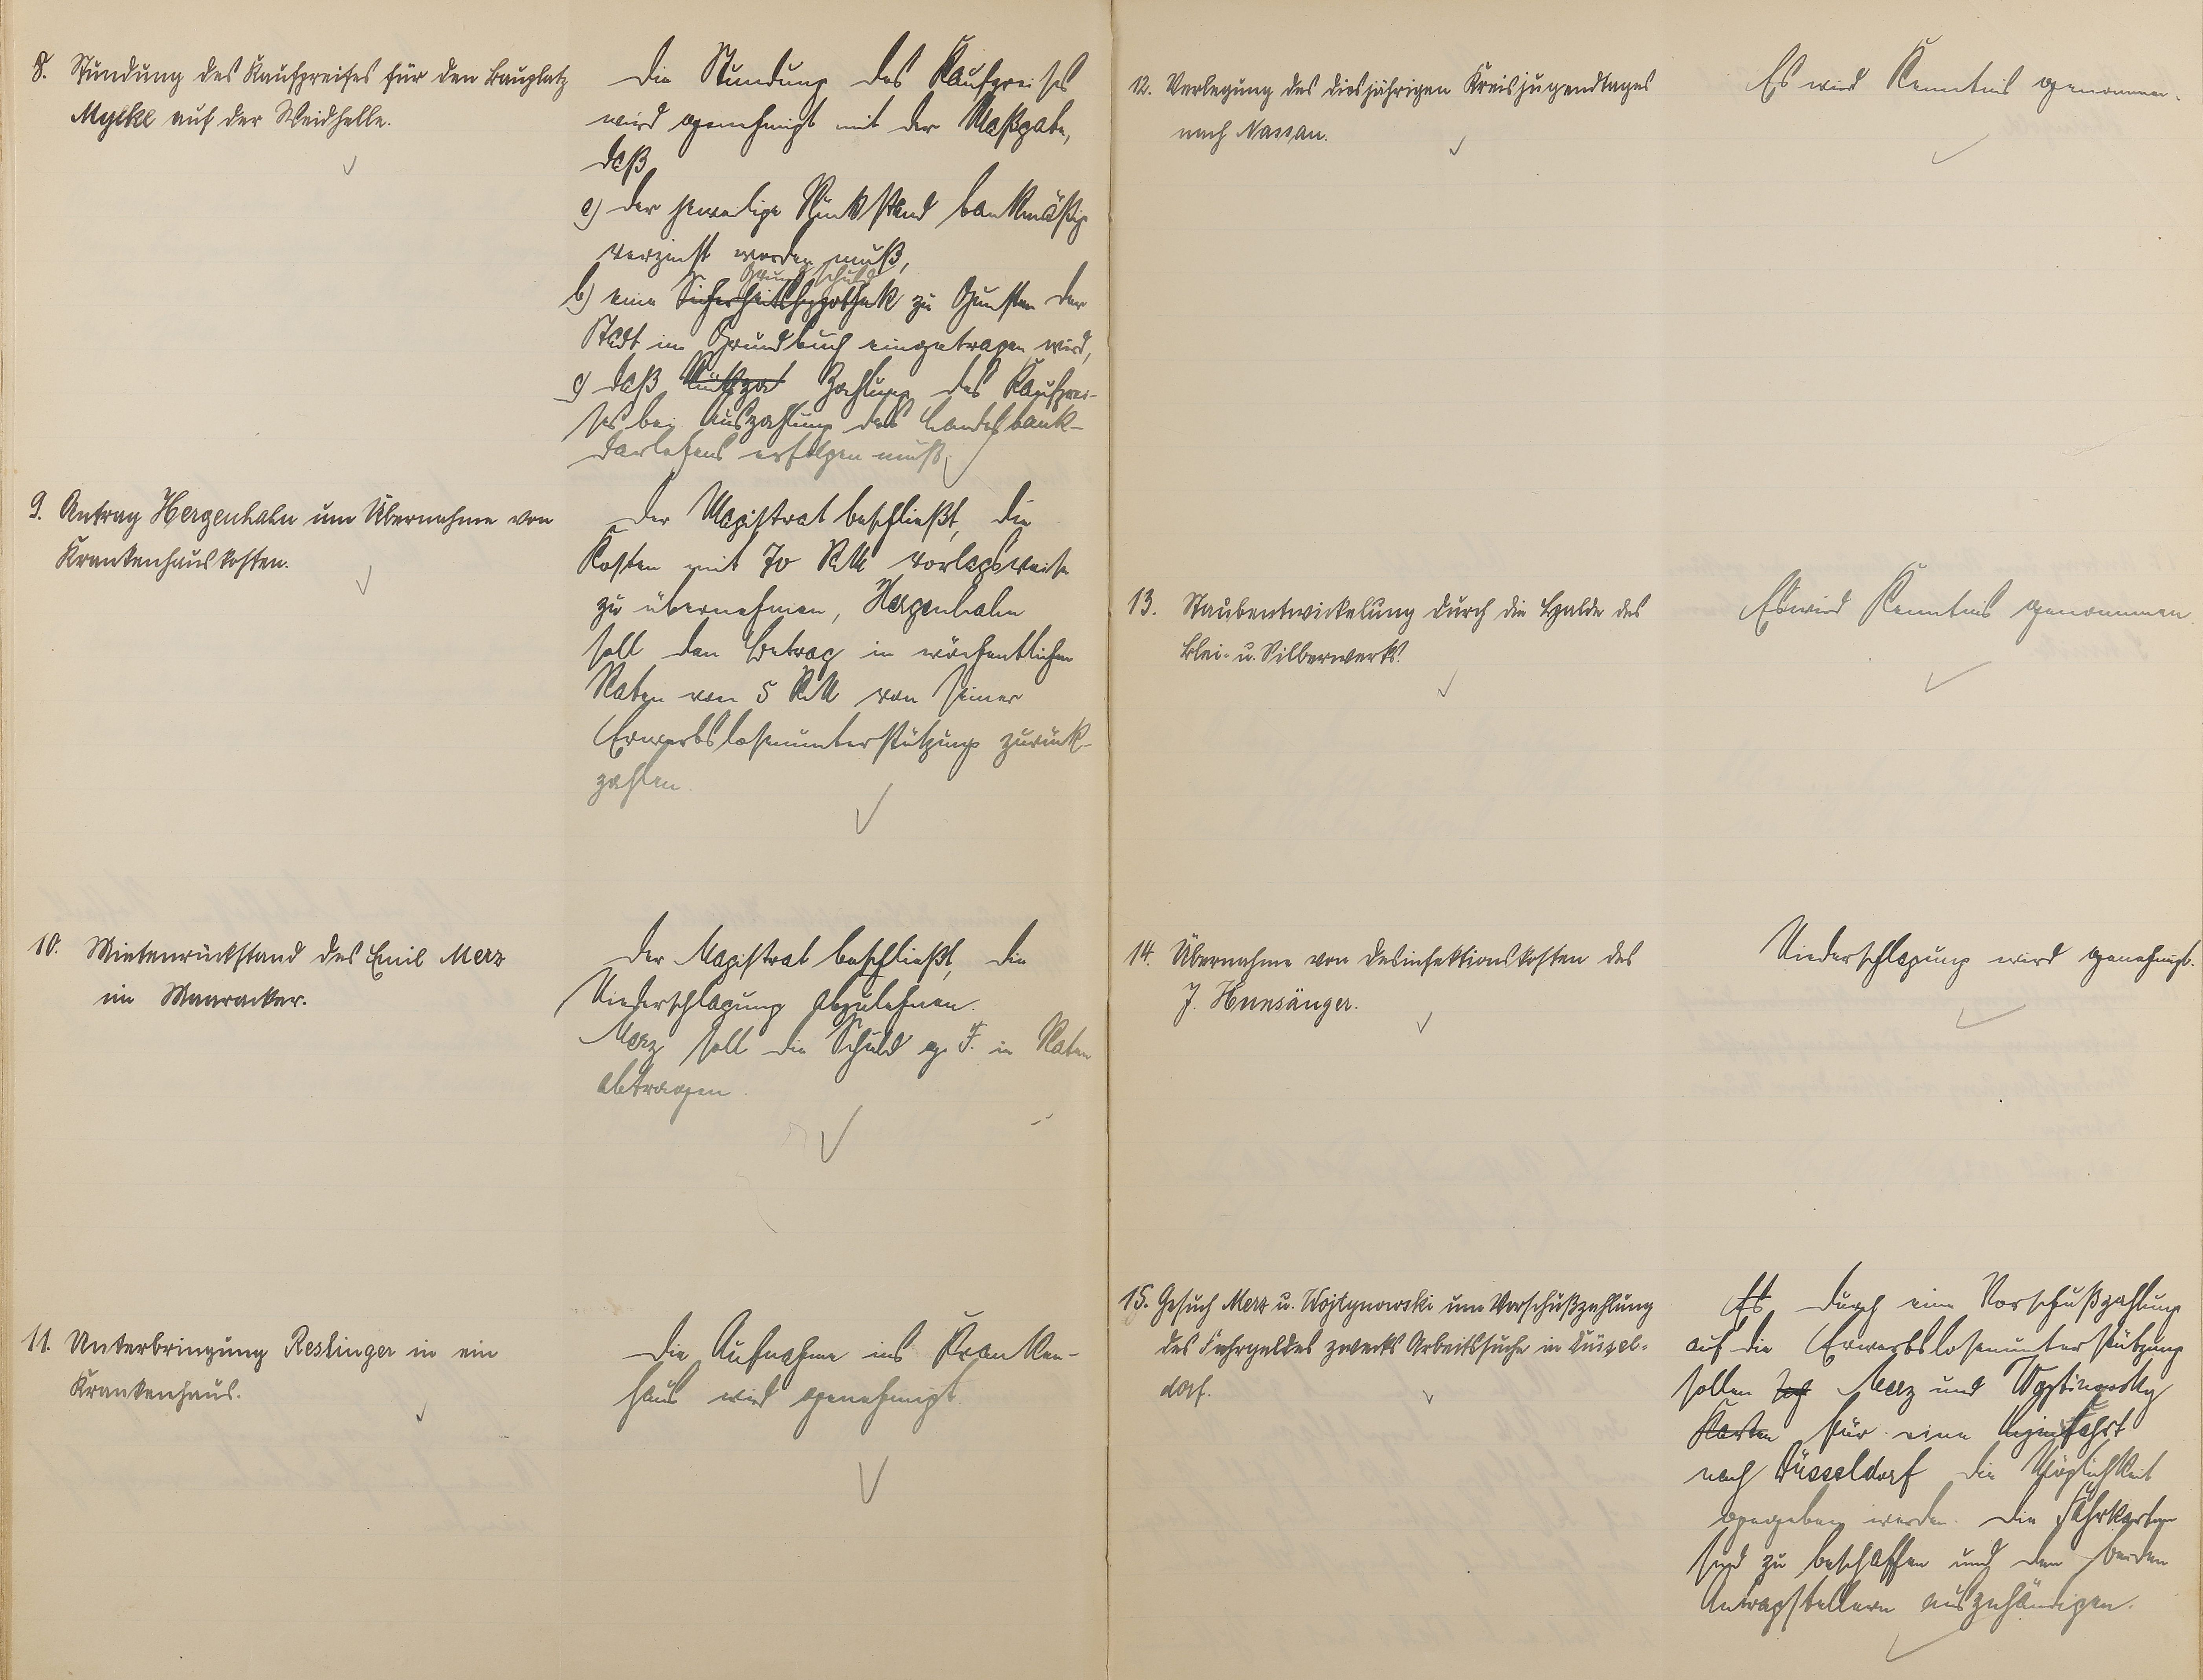 8. Stundung des Kaufpreises für den Bauplatz
Mylke auf der Weidhelle.
Die Stundung des Kaufpreises
wird genehmigt mit der Maßgabe,
daß
a) der jeweilige Rückstand bankmäßig
verzinst werden muß,
Grundschuld
b) eine Sicherheitshypothek zu Gunsten der
Stadt im Grundbuch eingetragen wird,
c) daß Rückza Zahlung des Kaufprei-
ses bei Auszahlung des Landesbank-
darlehens erfolgen muß.
9. Antrag Hergenhahn um Übernahme von
Krankenhauskosten.
Der Magistrat beschließt, die
Kosten mit 70 RM vorlagsweise
zu übernehmen, Hergenhahn
soll den Betrag in wöchentlichen
Raten von 5 RM von seiner
Erwerbslosenunterstützung zurück-
zahlen.
10. Mietenrückstand des Emil Merz
im Maaracker.
Der Magistrat beschließt, die
Niederschlagung abzulehnen.
Merz soll die Schuld g. F. in Raten
abtragen.
11. Unterbringung Reslinger in ein
Krankenhaus.
Die Aufnahme ins Kranken-
haus wird genehmigt
12. Verlegung des diesjährigen Kreisjugendtages
nach Nassau.
Es wird Kenntnis genommen.
13. Staubentwickelung durch die Halde des
Blei- u. Silberwerks.
Es wird Kenntnis genommen.
14. Übernahme von Desinfektionskosten des
J. Hunsänger.
Niederschlagung wird genehmigt.
15. Gesuch Merz u. Wojtynowski um Vorschußzahlung
des Fahrgeldes zwecks Arbeitssuche in Düssel-
dorf.
Es durch eine Vorschußzahlung
auf die Erwerbslosenunterstützung
sollen Merz und Wojtinowsky
Karten für eine Hinfahrt
nach Düsseldorf die Möglichkeit
gegeben werden. Die Fahrkarten
sind zu beschaffen und den beiden
Antragstellern auszuhändigen.